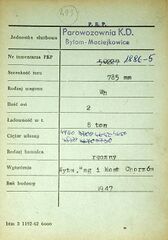 P. K. P.
Jednostka służbowa
Parowozownia K.D.
Bytom-Maciejkowice
Nr inwentarza PKP
1886-S
Szerokość toru
785 mm
Rodzaj wagonu
Wh
Ilość osi
2
Ładowność w t.
8 ton
Ciężar własny
Rodzaj hamulca
ręczny
Wytwórnia
Wytw. Wag i Most Chorzów
Rok budowy
1947